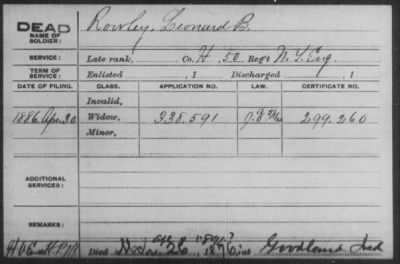 DEAD
NAME OF SOLDIER:
Rowley, Leonard B.
SERVICE: Late rank, Co. H. 50 Reg't N.Y. Eng.
TERM OF SERVICE: Enlisted , 1 Discharged , 1
DATE OF FILING. CLASS. APPLICATION NO. LAW. CERTIFICATE NO.
Invalid,
1886 Apr. 20 Widow, 338.591 299.260
Minor,
ADDITIONAL SERVICES:
REMARKS:
Died 26, 1876, at Goodland Ind